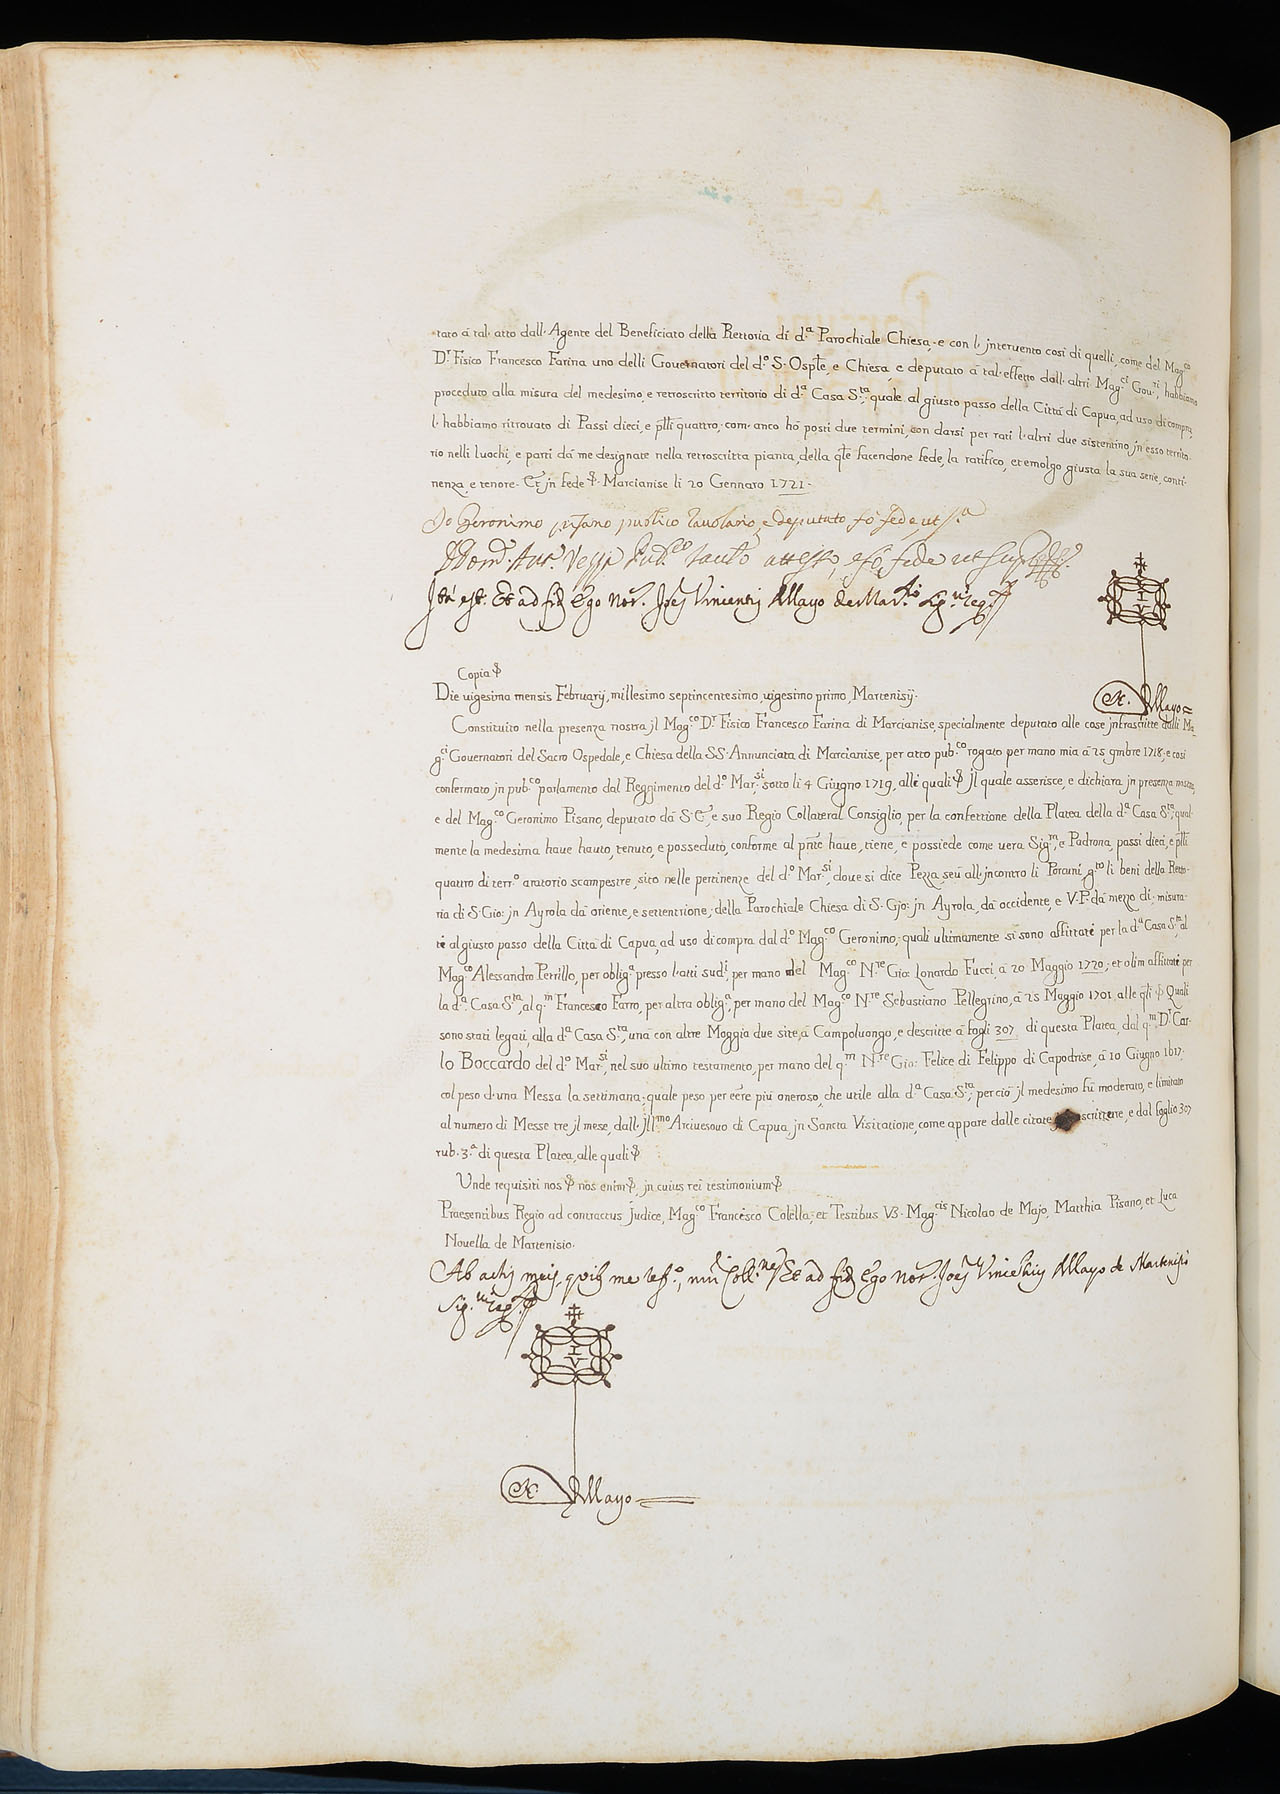 tato á tal' atto dall' Agente del Beneficiato della Rettoria di d.ª Parochiale Chiesa, e con l' jnteruento così di quelli, come del Mag.co
D.r Fisico Francesco Farina uno delli Gouernatori del d.º S. Osple, e Chiesa, e deputato á tal' effetto dall' altri Mag.ci Gou.ri, habbiamo
proceduto alla misura del medesimo, e retroscritto territorio di d.ª Casa S.ta, quale al giusto passo della Cittá di Capua, ad uso di compra,
l' habbiamo ritrouato di Passi dieci, e plli quattro, com' anco hó posti due termini, con darsi per rati l' altri due sistentino, jn esso territo-
rio nelli luochi, e parti dá me designate nella retroscritta pianta, della qle facendone fede, la ratifico, et emolgo giusta la sua serie, conti-
nenza, e tenore. Et jn fede ꝓ. Marcianise li 20 Gennaro 1721.
Io Geronimo pisano publico tauolario, e deputato fó fede, ut s.ª
Ita est. Et ad fid. Ego Not.r Joes Vincentius Mayo de Mar.sio sig.ui reg.s
I V
Mayo
Copia ꝓ
Die uigesima mensis Februarij, millesimo septincentesimo, uigesimo primo, Martenisij.
Constituito nella presenza nostra jl Mag.co D.r Fisico Francesco Farina di Marcianise, specialmente deputato alle cose jnfrascritte dalli Ma-
g.ci Gouernatori del Sacro Ospedale, e Chiesa della SS. Annunciata di Marcianise, per atto pub.co rogato per mano mia á 25 9mbre 1718, e così
confermato jn pub.co parlamento dal Reggimento del d.º Mar.si, sotto li 4 Giugno 1719, alli quali ꝓ jl quale asserisce, e dichiara jn presenza nostra,
e del Mag.co Geronimo Pisano, deputato dá S. E., e suo Regio Collateral Consiglio, per la confettione della Platea della d.ª Casa S.ta, qual-
mente la medesima haue hauto, tenuto, e posseduto, conforme al pnte haue, tiene, e possiede come uera Sig.ra, e Padrona, passi dieci, e plli
quattro di terr.º aratorio scampestre, sito nelle pertinenze del d.º Mar.si, doue si dice Pezza, seú all' jncontro li Porcuni, g.to li beni della Retto-
ria di S. Gio: jn Ayrola dá oriente, e settentrione, della Parochiale Chiesa di S. Gjo: jn Ayrola, dá occidente, e V. P. dá mezo dí, misura-
te al giusto passo della Cittá di Capua, ad uso di compra dal d.º Mag.co Geronimo, quali ultimamente si sono affittate per la d.ª Casa S.ta, al
Mag.co Alessandro Petrillo, per oblig.ª presso l' atti sud.i, per mano del Mag.co N.re Gio: Lonardo Fucci, á 20 Maggio 1720, et olim affittate per
la d.ª Casa S.ta, al q.m Francesco Farro, per altra oblig.ª, per mano del Mag.co N.re Sebastiano Pellegrino, á 25 Maggio 1701, alle qli ꝓ Quali
sono stati legati, alla d.ª Casa S.ta, uná con altre Moggia due site, á Campoluongo, e descritte á fogli 307 di questa Platea, dal q.m D.r Car-
lo Boccardo del d.º Mar.si, nel suo ultimo testamento, per mano del q.m N.re Gio: Felice di Felippo di Capodrise, á 10 Giugno 1617,
col peso d' una Messa la settimana, quale peso per eere piú oneroso, che utile alla d.ª Casa S.ta, perció jl medesimo fú moderato, e limitato
al numero di Messe tre jl mese, dall' jll.mo Arciuesouo di Capua, jn Sancta Visitatione, come appare dalle citate scritture, e dal foglio 307
rub. 3.ª di questa Platea, alle quali ꝓ
Unde requisiti nos ꝓ nos enim ꝓ, jn cuius rei testimonium ꝓ
Praesentibus Regio ad contractus Judice, Mag.co Francesco Colella, et Testibus VS. Mag.cis Nicolao de Majo, Matthia Pisano, et Luca
Nouella de Martenisio.
Ab actis meis, Et ad fid. Ego Not.r Joes Vincentius Mayo de Martenisio
sig.ui reg.s
I V
Mayo